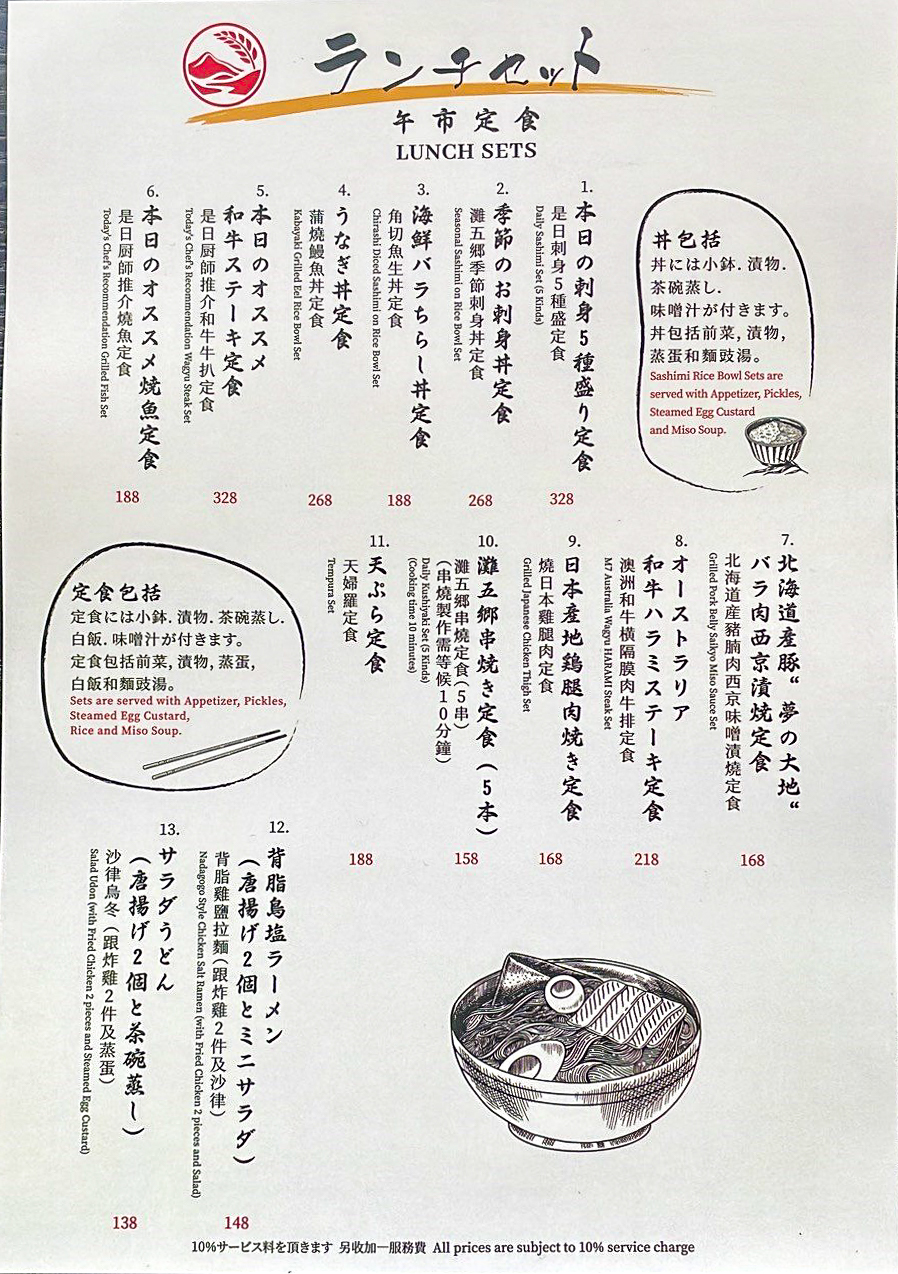 ランチセット
午市定食
LUNCH SETS
丼包括
丼には小鉢.漬物.
茶碗蒸し.
味噌汁が付きます。
丼包括前菜,漬物,
蒸蛋和麵豉湯。
Sashimi Rice Bowl Sets are
served with Appetizer, Pickles,
Steamed Egg Custard
and Miso Soup.
1.
本日の刺身5種盛り定食
是日刺身5種盛定食
Daily Sashimi Set (5 Kinds)
328
2.
季節のお刺身丼定食
灘五郷季節刺身丼定食
Seasonal Sashimi on Rice Bowl Set
268
3.
海鮮バラちらし丼定食
角切魚生丼定食
Chirashi Diced Sashimi on Rice Bowl Set
188
4.
うなぎ丼定食
蒲燒鰻魚丼定食
Kabayaki Grilled Eel Rice Bowl Set
268
5.
本日のオススメ
和牛ステーキ定食
是日厨師推介和牛牛扒定食
Today's Chef's Recommendation Wagyu Steak Set
328
6.
本日のオススメ焼魚定食
是日厨師推介燒魚定食
Today's Chef's Recommendation Grilled Fish Set
188
7.
北海道産豚“夢の大地“
バラ肉西京漬焼定食
北海道産豬腩肉西京味噌漬燒定食
Grilled Pork Belly Saikyo Miso Sauce Set
168
8.
オーストラリア
和牛ハラミステーキ定食
澳洲和牛橫隔膜肉牛排定食
M7 Australia Wagyu HARAMI Steak Set
218
9.
日本産地鶏腿肉焼き定食
燒日本雞腿肉定食
Grilled Japanese Chicken Thigh Set
168
10.
灘五郷串焼き定食(5本)
灘五郷串燒定食(5串)
(串燒製作需等候10分鐘)
Daily Kushiyaki Set (5 Kinds)
(Cooking time 10 minutes)
158
11.
天ぷら定食
天婦羅定食
Tempura Set
188
定食包括
定食には小鉢.漬物.茶碗蒸し.
白飯.味噌汁が付きます。
定食包括前菜,漬物,蒸蛋,
白飯和麵豉湯。
Sets are served with Appetizer, Pickles,
Steamed Egg Custard,
Rice and Miso Soup.
12.
背脂鳥塩ラーメン
(唐揚げ2個とミニサラダ)
背脂雞鹽拉麵(跟炸雞2件及沙律)
Nadagogo Style Chicken Salt Ramen (with Fried Chicken 2 pieces and Salad)
148
13.
サラダうどん
(唐揚げ2個と茶碗蒸し)
沙律烏冬(跟炸雞2件及蒸蛋)
Salad Udon (with Fried Chicken 2 pieces and Steamed Egg Custard)
138
10%サービス料を頂きます 另收加一服務費 All prices are subject to 10% service charge